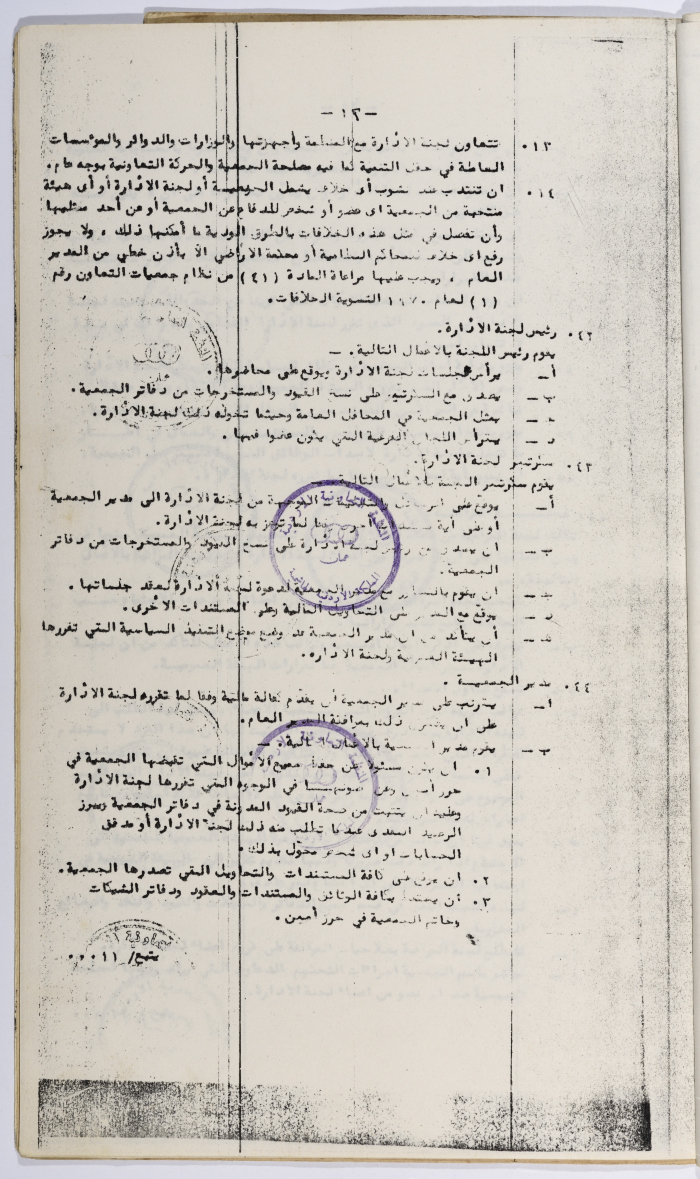 - ١٢ -
١٣. تتعاون لجنة الادارة مع المنظمة وأجهزتها والوزارات والدوائر والمؤسسات
العاملة في حقل التنمية لما فيه مصلحة الجمعية والحركة التعاونية بوجه عام.
١٤. ان تنتدب عند نشوب أى خلاف يشمل الجمعية أو لجنة الادارة أو أى هيئة
منتخبة من الجمعية اى عضو أو شخص للدفاع عن الجمعية أو عن أحد ممثليها
وأن تفصل في مثل هذه الخلافات بالطرق الودية ما أمكنها ذلك، ولا يجوز
رفع اى خلاف للمحاكم النظامية أو محكمة الأراضي الا بأذن خطي من المدير
العام، ويجب عليها مراعاة المادة (٤١) من نظام جمعيات التعاون رقم
(١) لعام ١٩٧٠ لتسوية الخلافات.
٤٢. رئيس لجنة الادارة.
يقوم رئيس اللجنة بالاعمال التالية. -
أ - يرأس جلسات لجنة الادارة ويوقع على محاضرها.
ب - يصدق مع السكرتير على نسخ القيود والمستخرجات من دفاتر الجمعية.
ج - يمثل الجمعية في المحافل العامة وحيثما تخوله ذلك لجنة الادارة.
د - يترأس اللجان الفرعية التي يكون عضوا فيها.
٤٣. سكرتير لجنة الادارة.
يقوم سكرتير اللجنة بالاعمال التالية. -
أ - يوقع على الرسائل والتبليغات الموجهة من لجنة الادارة الى مدير الجمعية
أو على أية مستندات أخرى لما تجيزه لجنة الادارة.
ب - ان يصدق مع رئيس لجنة الادارة على نسخ القيود والمستخرجات من دفاتر
الجمعية.
ج - ان يقوم بالتشاور مع مدير الجمعية لدعوة لجنة الادارة لعقد جلساتها.
د - يوقع مع المدير على التحاويل المالية وعلى المستندات الأخرى.
هـ - أن يتأكد من ان مدير الجمعية قد وضع موضع التنفيذ السياسية التي تقررها
الهيئة العمومية ولجنة الاداره.
٤٤. مدير الجمعية.
أ - يترتب على مدير الجمعية أن يقدم كفالة مالية وفقا لما تقرره لجنة الادارة
على ان يقترن ذلك بموافقة المدير العام.
ب - يقوم مدير الجمعية بالاعمال التالية. -
١. ان يكون مسئولا عن حفظ جميع الأموال التي تقبضها الجمعية في
حرز أمين وعن صرفها في الوجوه التي تقررها لجنة الادارة
وعليه ان يتثبت من صحة القيود المدونة في دفاتر الجمعية ويبرز
الرصيد النقدى عندما تطلب منه ذلك لجنة الادارة أو مدقق
الحسابات او اى شخص مخول بذلك.
٢. ان يوقع على كافة المستندات والتحاويل التي تصدرها الجمعية.
٣. أن يحتفظ بكافة الوثائق والمستندات والعقود ودفاتر الشيكات
وخاتم الجمعية في حرز أمين.
يتبع/ ١١...